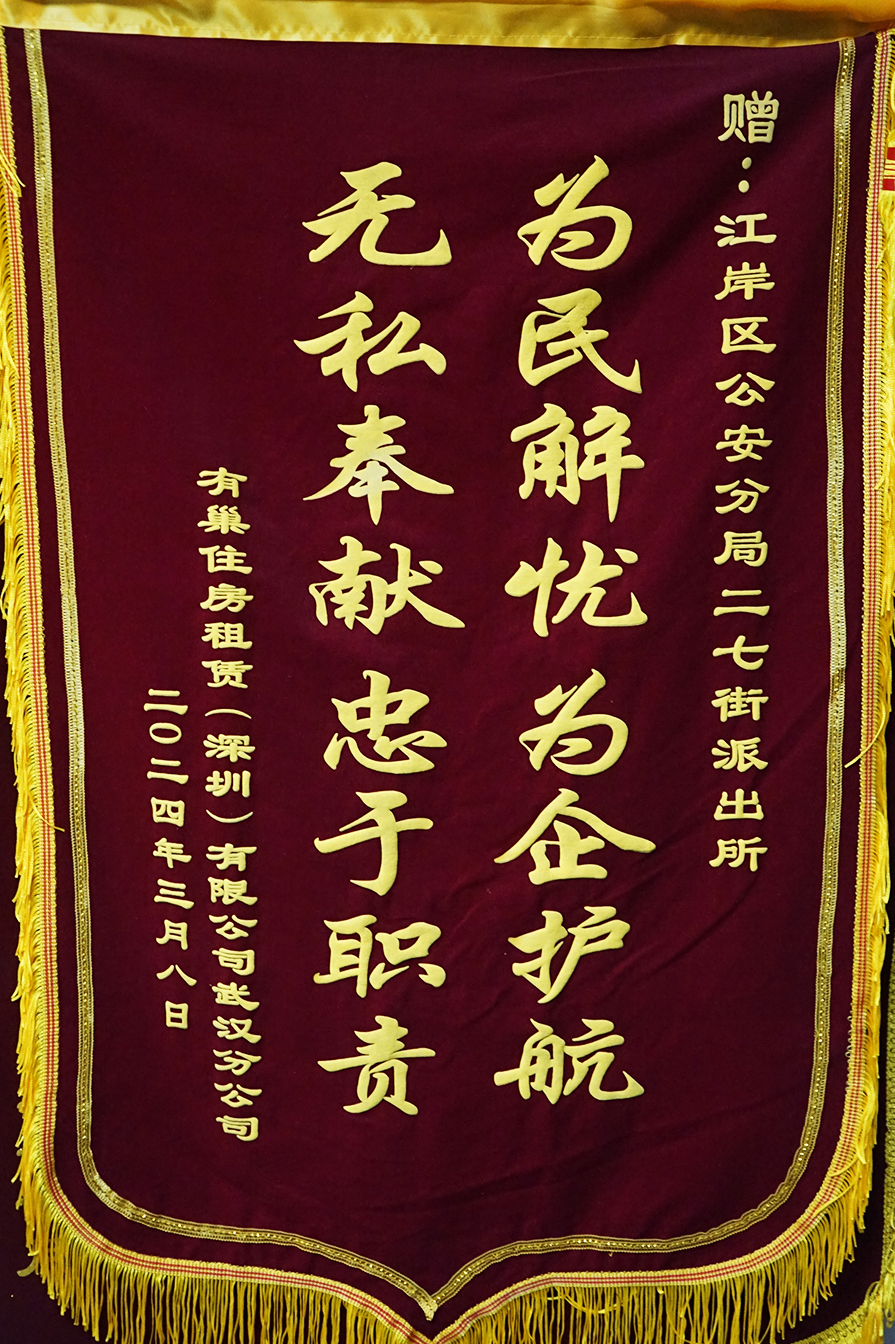 赠：江岸区公安分局二七街派出所
为民解忧为企护航
无私奉献忠于职责
有巢住房租赁（深圳）有限公司武汉分公司
二〇二四年三月八日